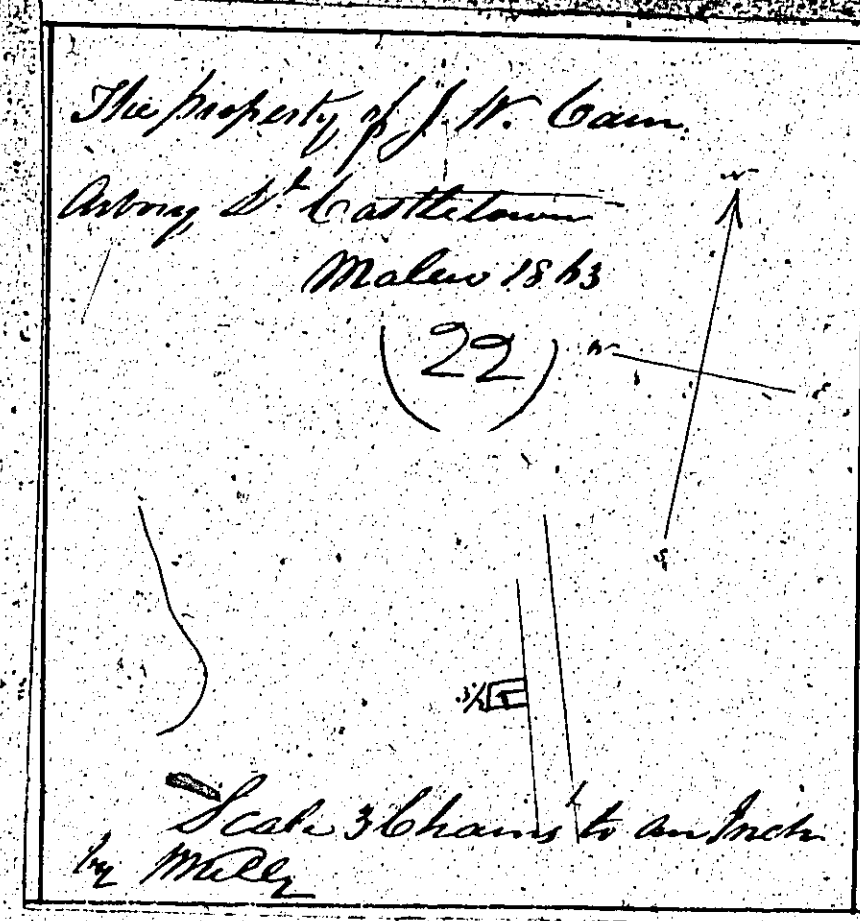 The property of J. W. Cain.
Arbory St Castletown
Malew 1863
(22)
N
W
E
S
3/2
Scale 3 Chains to an Inch
by